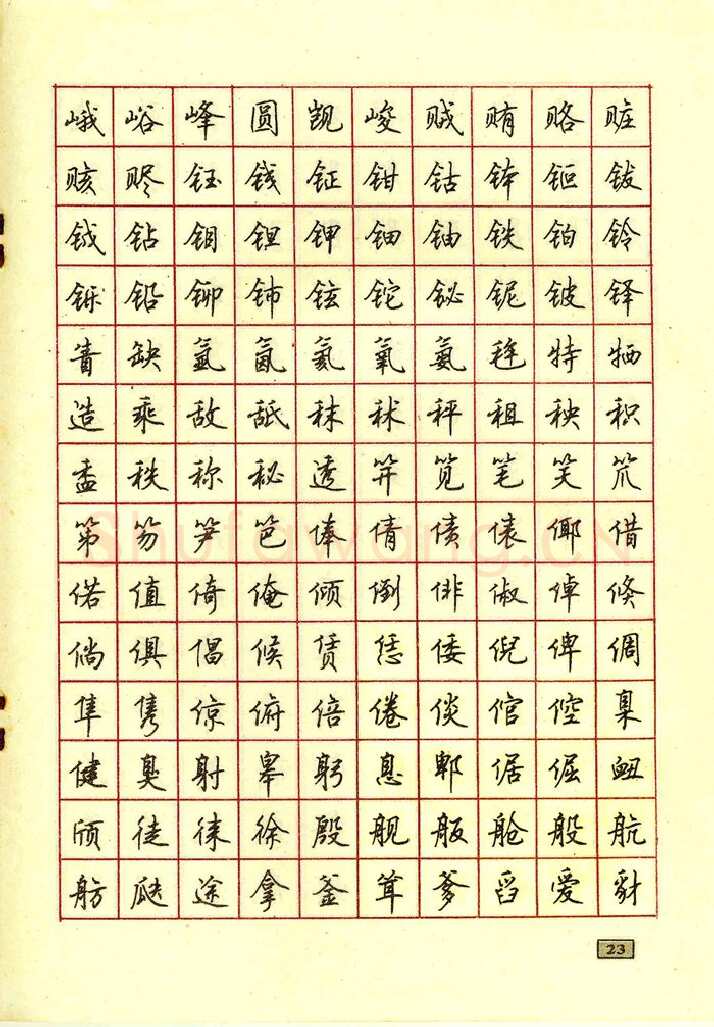 峨峪峰圆觊峻贼贿赂赃
赅赆钰钱钲钳钴钵钷钹
钺钻钼钽钾钿铀铁铂铃
铄铅铆铈铉铊铋铌铍铎
眚缺氩氤氦氧氨毪特牺
造乘敌舐秣秫秤租秧积
盉秩称秘透笄笕笔笑笊
笫笏笋笆俸倩债俵倻借
偌值倚俺倾倒俳俶倬倏
倘俱倡候赁恁倭倪俾倜
隼隽倞俯倍倦倓倌倥臬
健臭射皋躬息郫倨倔衄
颀徒徕徐殷舰舨舱般航
舫瓞途拿釜耸爹舀爱豺
Shufawang.CN
23